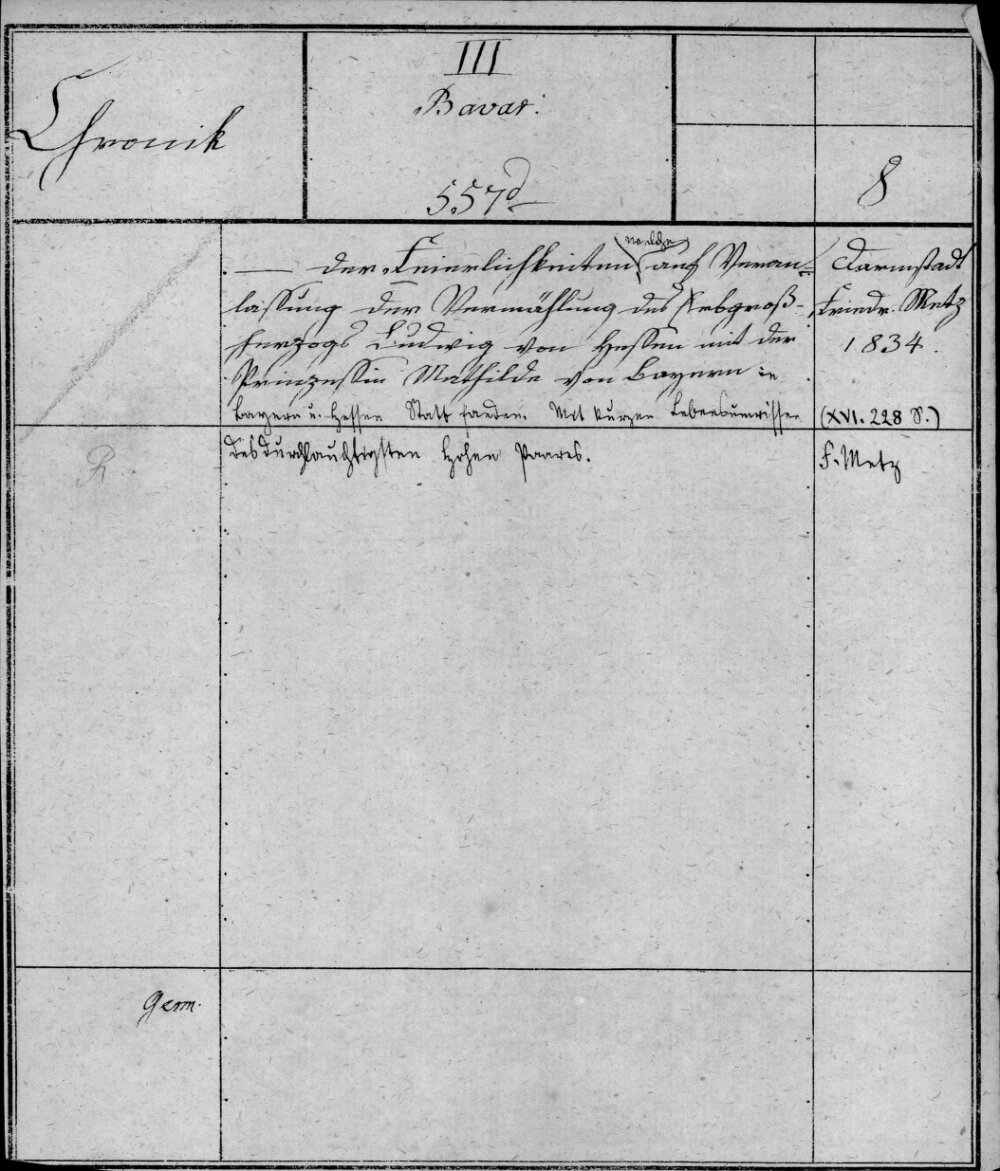 Chronik
III
Bavar.
557d
8
— der Feierlichkeiten, welche auf Veran=
lassung der Vermählung des Erbgroß-
herzogs Ludwig von Hessen mit der
Prinzessin Mathilde von Bayern in
Bayern u. Hessen Statt fanden. Mit kurzen Lebensumrissen
des durchlauchtigsten hohen Paares.
Darmstadt
Friedr. Metz
1834.
(XVI. 228 S.)
F. Metz
R
Germ.